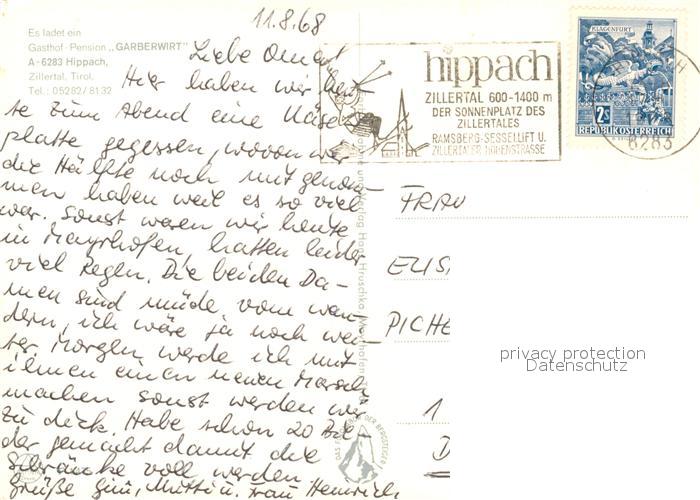 11.8.68
Es ladet ein
Gasthof-Pension „GARBERWIRT"
A-6283 Hippach,
Zillertal, Tirol.
Tel.: 05282/8132
Liebe Oma!
Hier haben wir heu-
te zum Abend eine Käse
platte gegessen, wovon wir
die Hälfte noch mit genom-
men haben weil es so viel
war. Sonst waren wir heute
in Mayrhofen, hatten leider
viel Regen. Die beiden Da-
men sind müde vom wan-
dern, ich wäre ja noch wei-
ter. Morgen werde ich mit
ihnen einen neuen Marsch
machen sonst werden wir
zu dick. Habe schon 20 Bil-
der gemacht damit die
Schränke voll werden.
Grüße Mutti u. Frau Heinrich
hippach
ZILLERTAL 600-1400 m
DER SONNENPLATZ DES
ZILLERTALES
RAMSBERG-SESSELLIFT U.
ZILLERTALER HÖHENSTRASSE
KLAGENFURT
2S
REPUBLIK ÖSTERREICH
6283
FRAU
ELIS
PICHE
1
D
privacy protection
Datenschutz